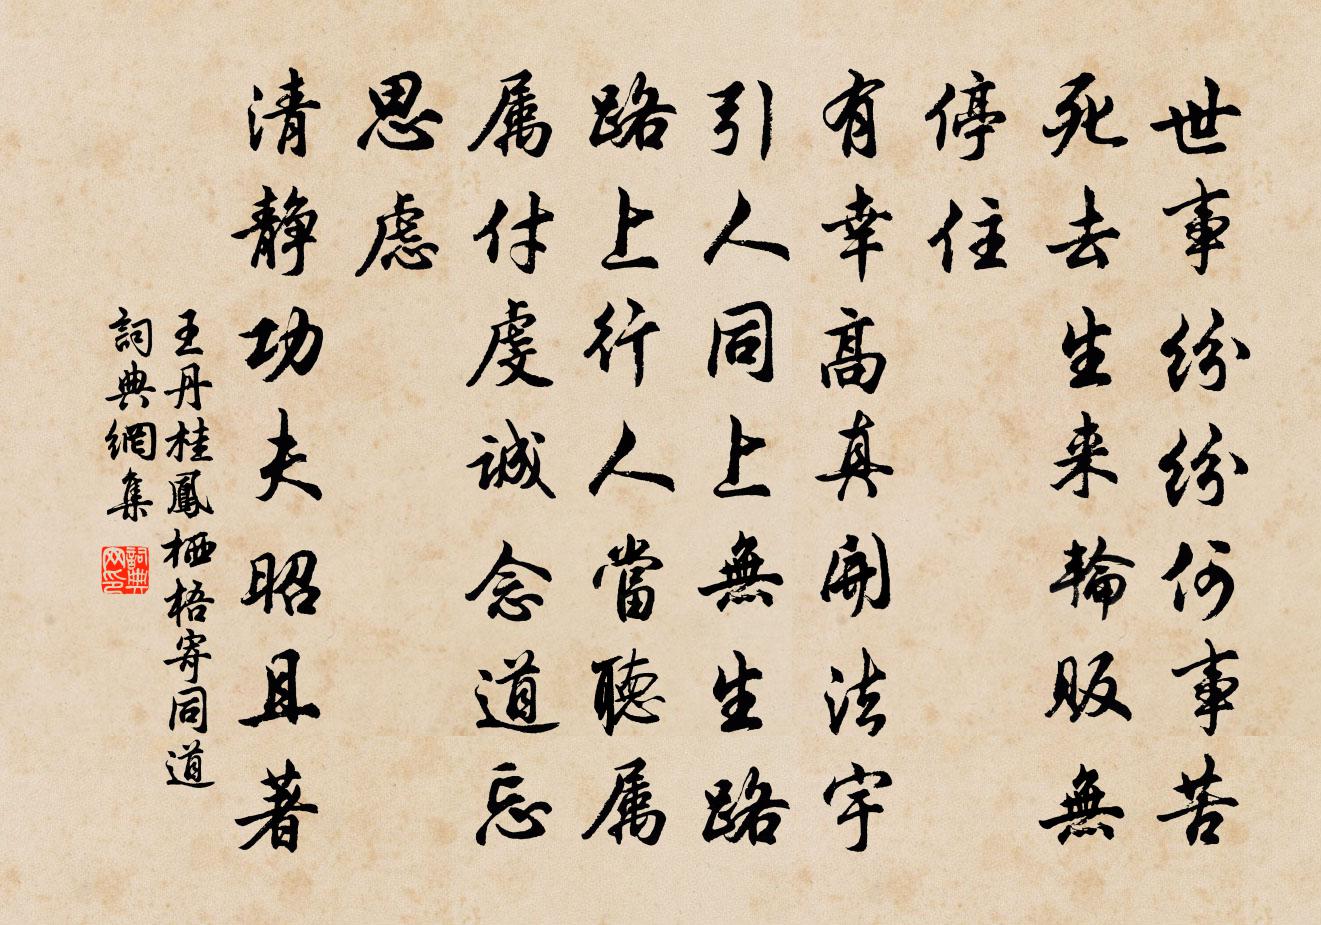 世事纷纷何事苦
死去生来輪贩無
停住
有幸高真開法宇
引人同上無生路
路上行人當聽属
属付虔诚念道忘
思慮
清静功夫昭且著
王丹桂鳳栖梧寄同道
詞典網集
詞典网印